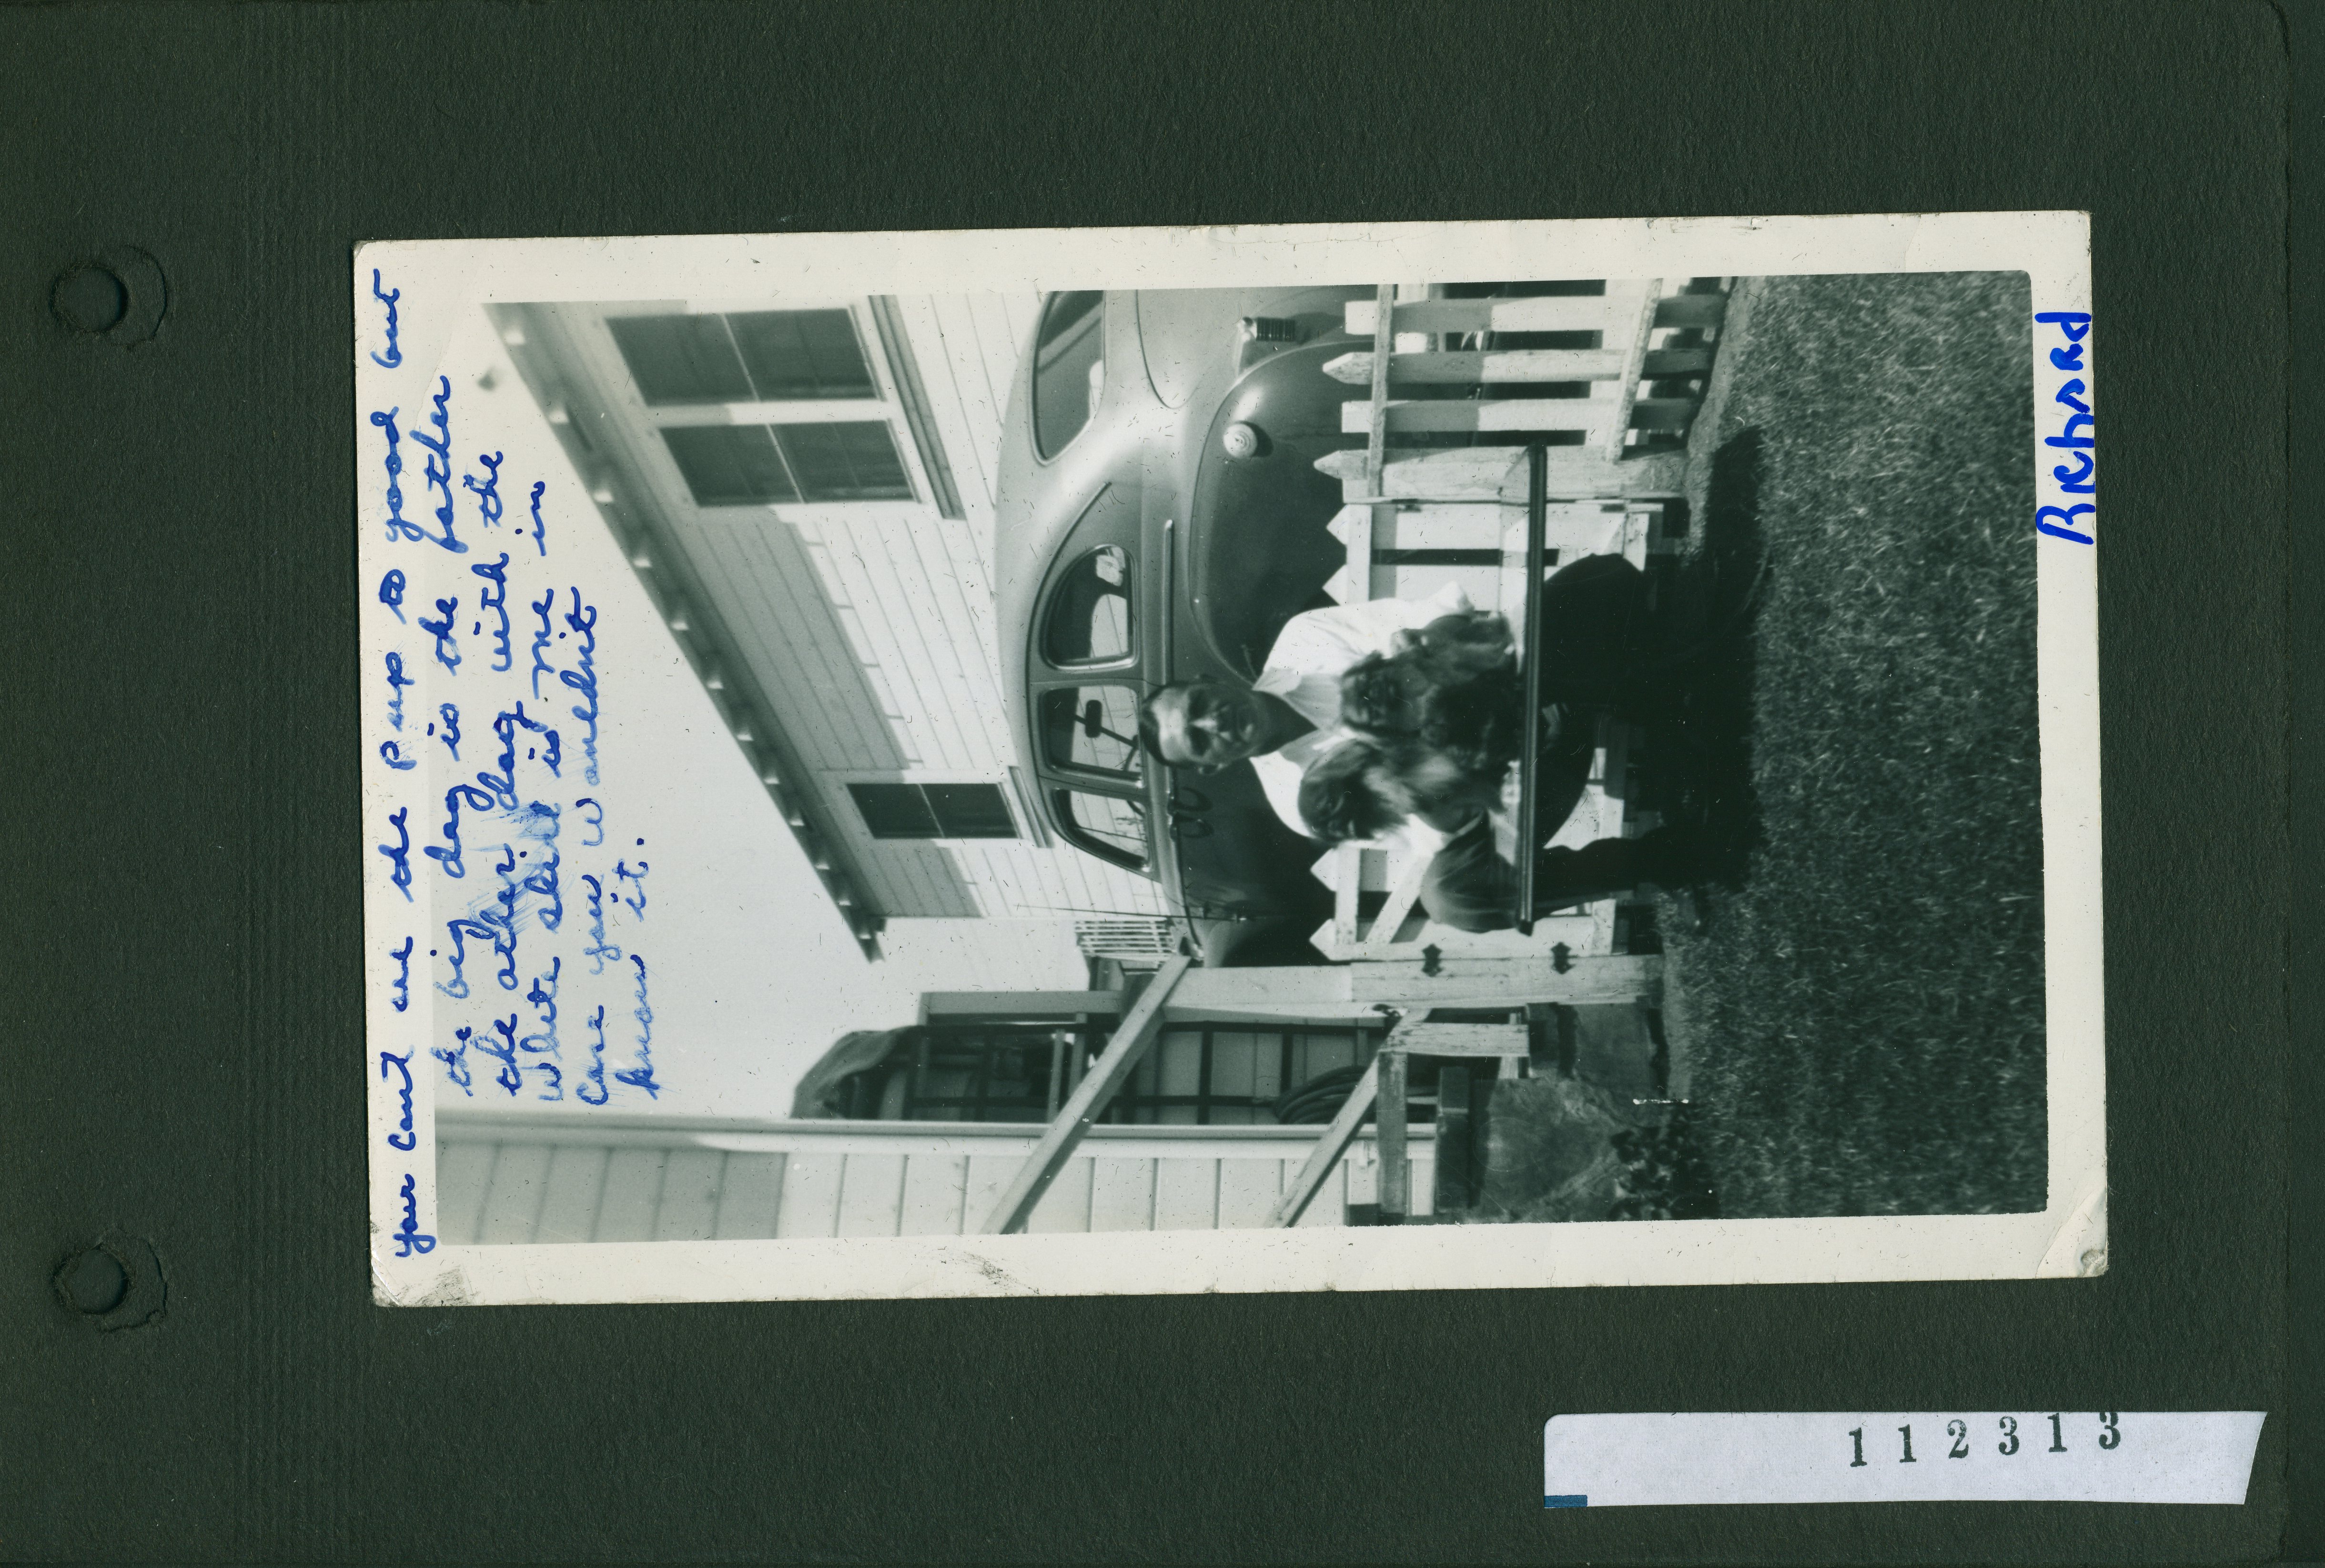 your cant see the pup to good but
the big dag is the father
the other dag with the
white shirt is me in
case you wouldnit
know it.
Richard
112313